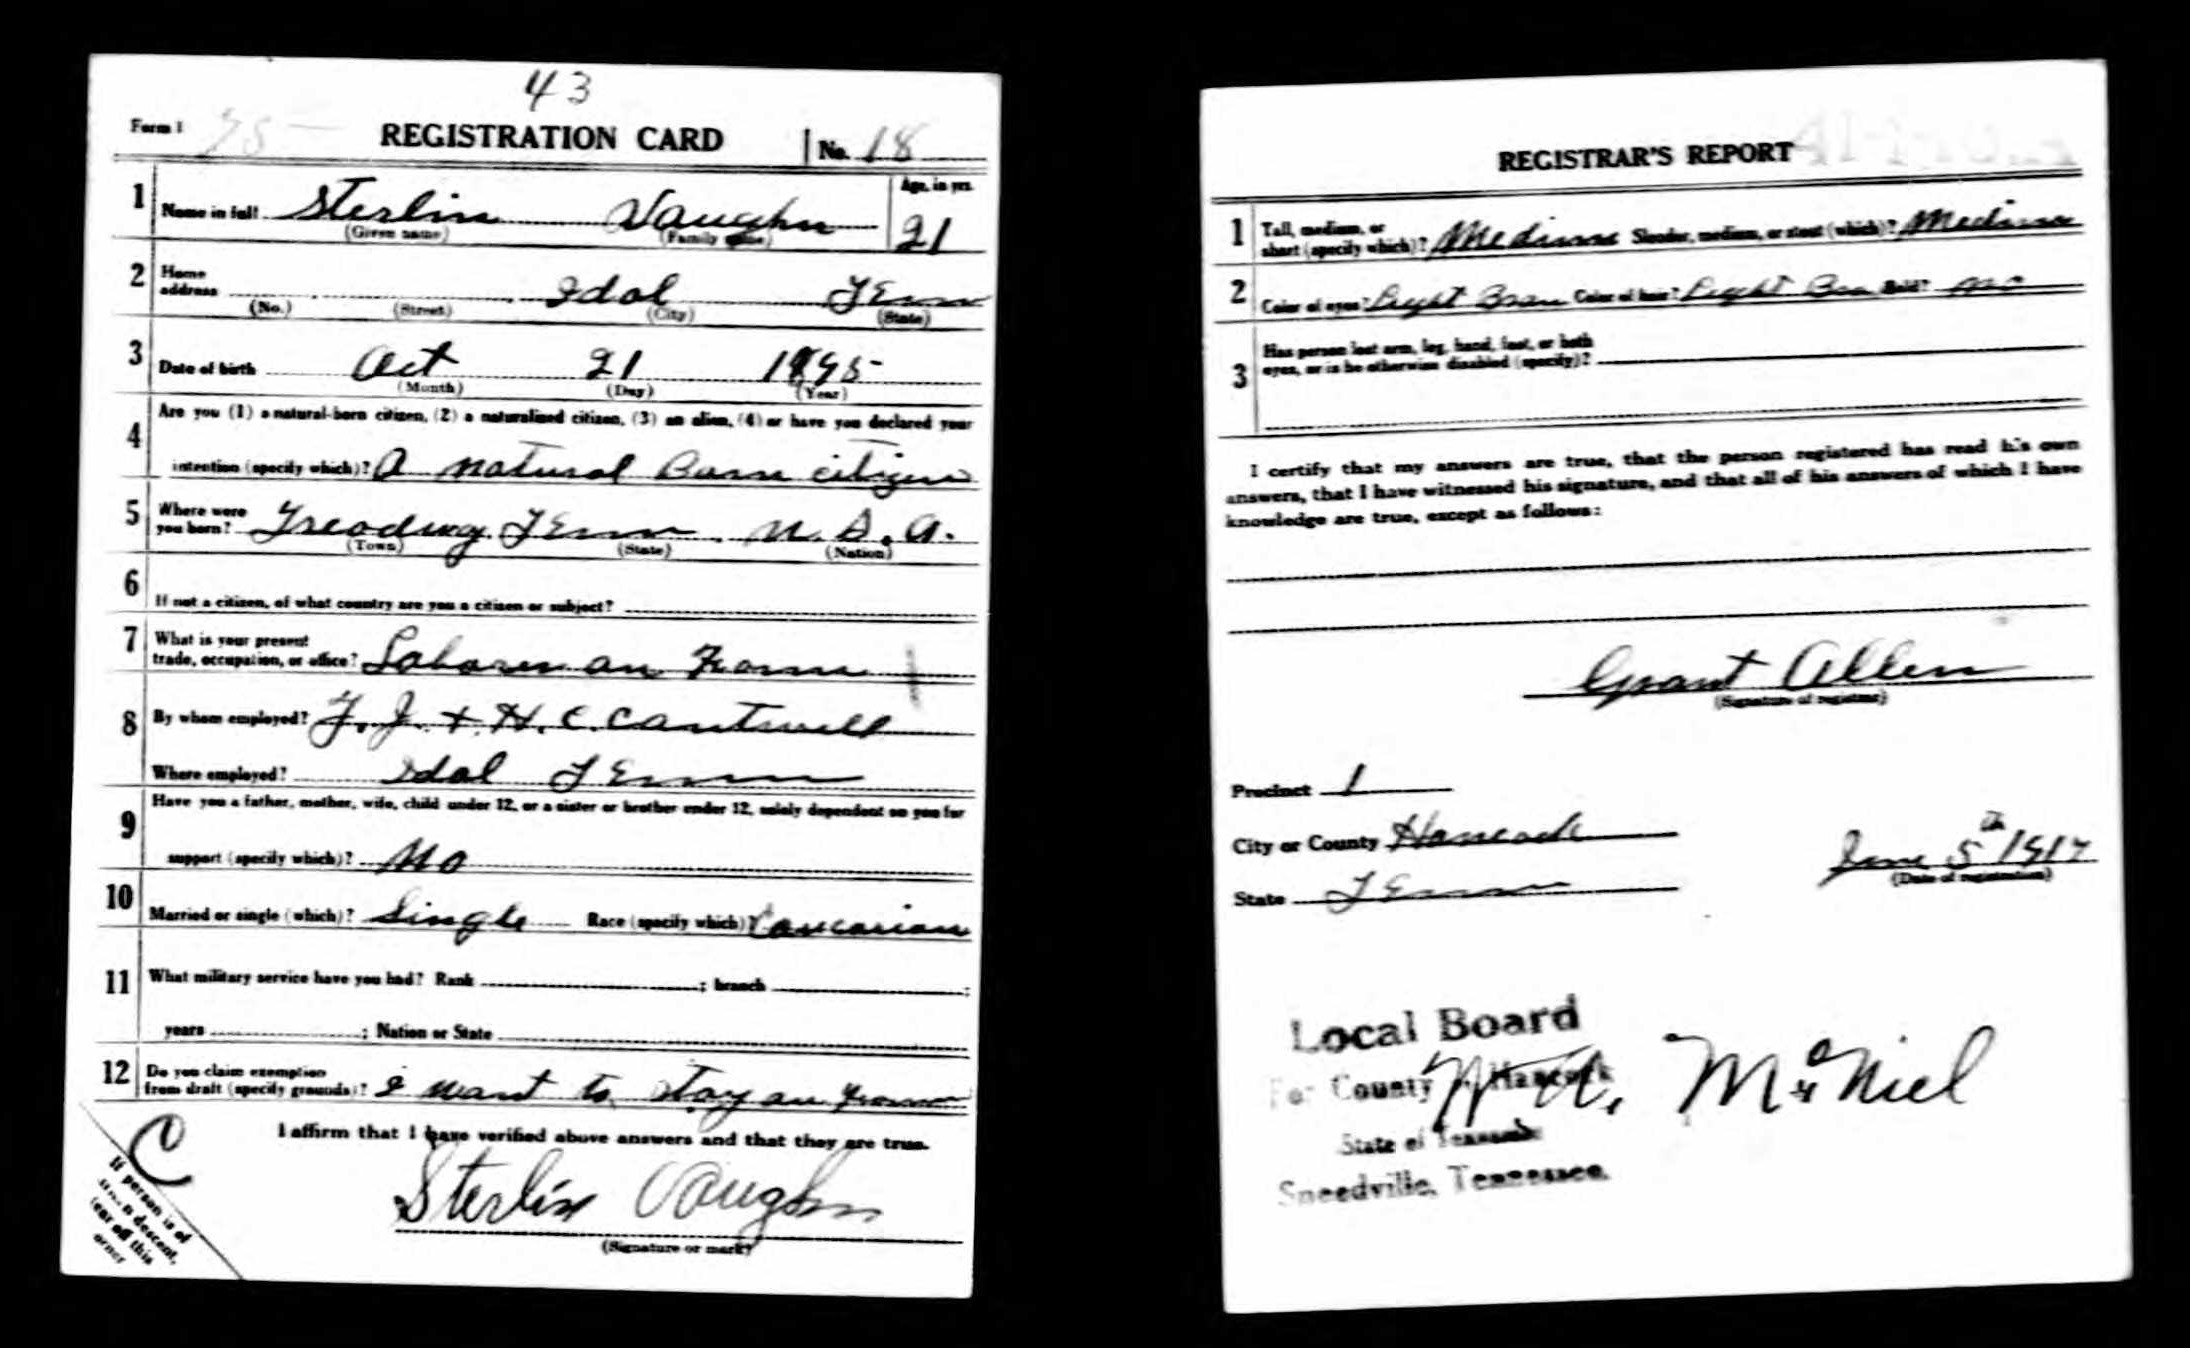 43
Form 1 REGISTRATION CARD No. 18
1 Name in full Sterlin Vaughn Age, in yrs. 21
(Given name) (Family name)
2 Home address Idol Tenn
(No.) (Street) (City) (State)
3 Date of birth Oct 21 1895
(Month) (Day) (Year)
4 Are you (1) a natural-born citizen, (2) a naturalized citizen, (3) an alien, (4) or have you declared your
intention (specify which)? A natural Born citizen
5 Where were you born? Treadway Tenn U. S. A.
(Town) (State) (Nation)
6 If not a citizen, of what country are you a citizen or subject?
7 What is your present
trade, occupation, or office? Laborer on Farm
8 By whom employed? T. J. + H. C. Cantwell
Where employed? Idol Tenn
9 Have you a father, mother, wife, child under 12, or a sister or brother under 12, solely dependent on you for
support (specify which)? No
10 Married or single (which)? Single Race (specify which)? Caucasian
11 What military service have you had? Rank ; branch ;
years ; Nation or State
12 Do you claim exemption
from draft (specify grounds)? I want to stay on farm
I affirm that I have verified above answers and that they are true.
Sterlin Vaughn
(Signature or mark)
C
If person is of
descent,
tear off this
corner
REGISTRAR'S REPORT
1 Tall, medium, or
short (specify which)? Medium Slender, medium, or stout (which)? Medium
2 Color of eyes? Light Bran Color of hair? Light Bra Bald? no
3 Has person lost arm, leg, hand, foot, or both
eyes, or is he otherwise disabled (specify)?
I certify that my answers are true, that the person registered has read his own
answers, that I have witnessed his signature, and that all of his answers of which I have
knowledge are true, except as follows:
Grant Allen
(Signature of registrar)
Precinct 1
City or County Hancock
State Tenn
June 5th 1917
(Date of registration)
Local Board
For County of Hancock
McNiel
State of Tennessee
Sneedville, Tennessee.